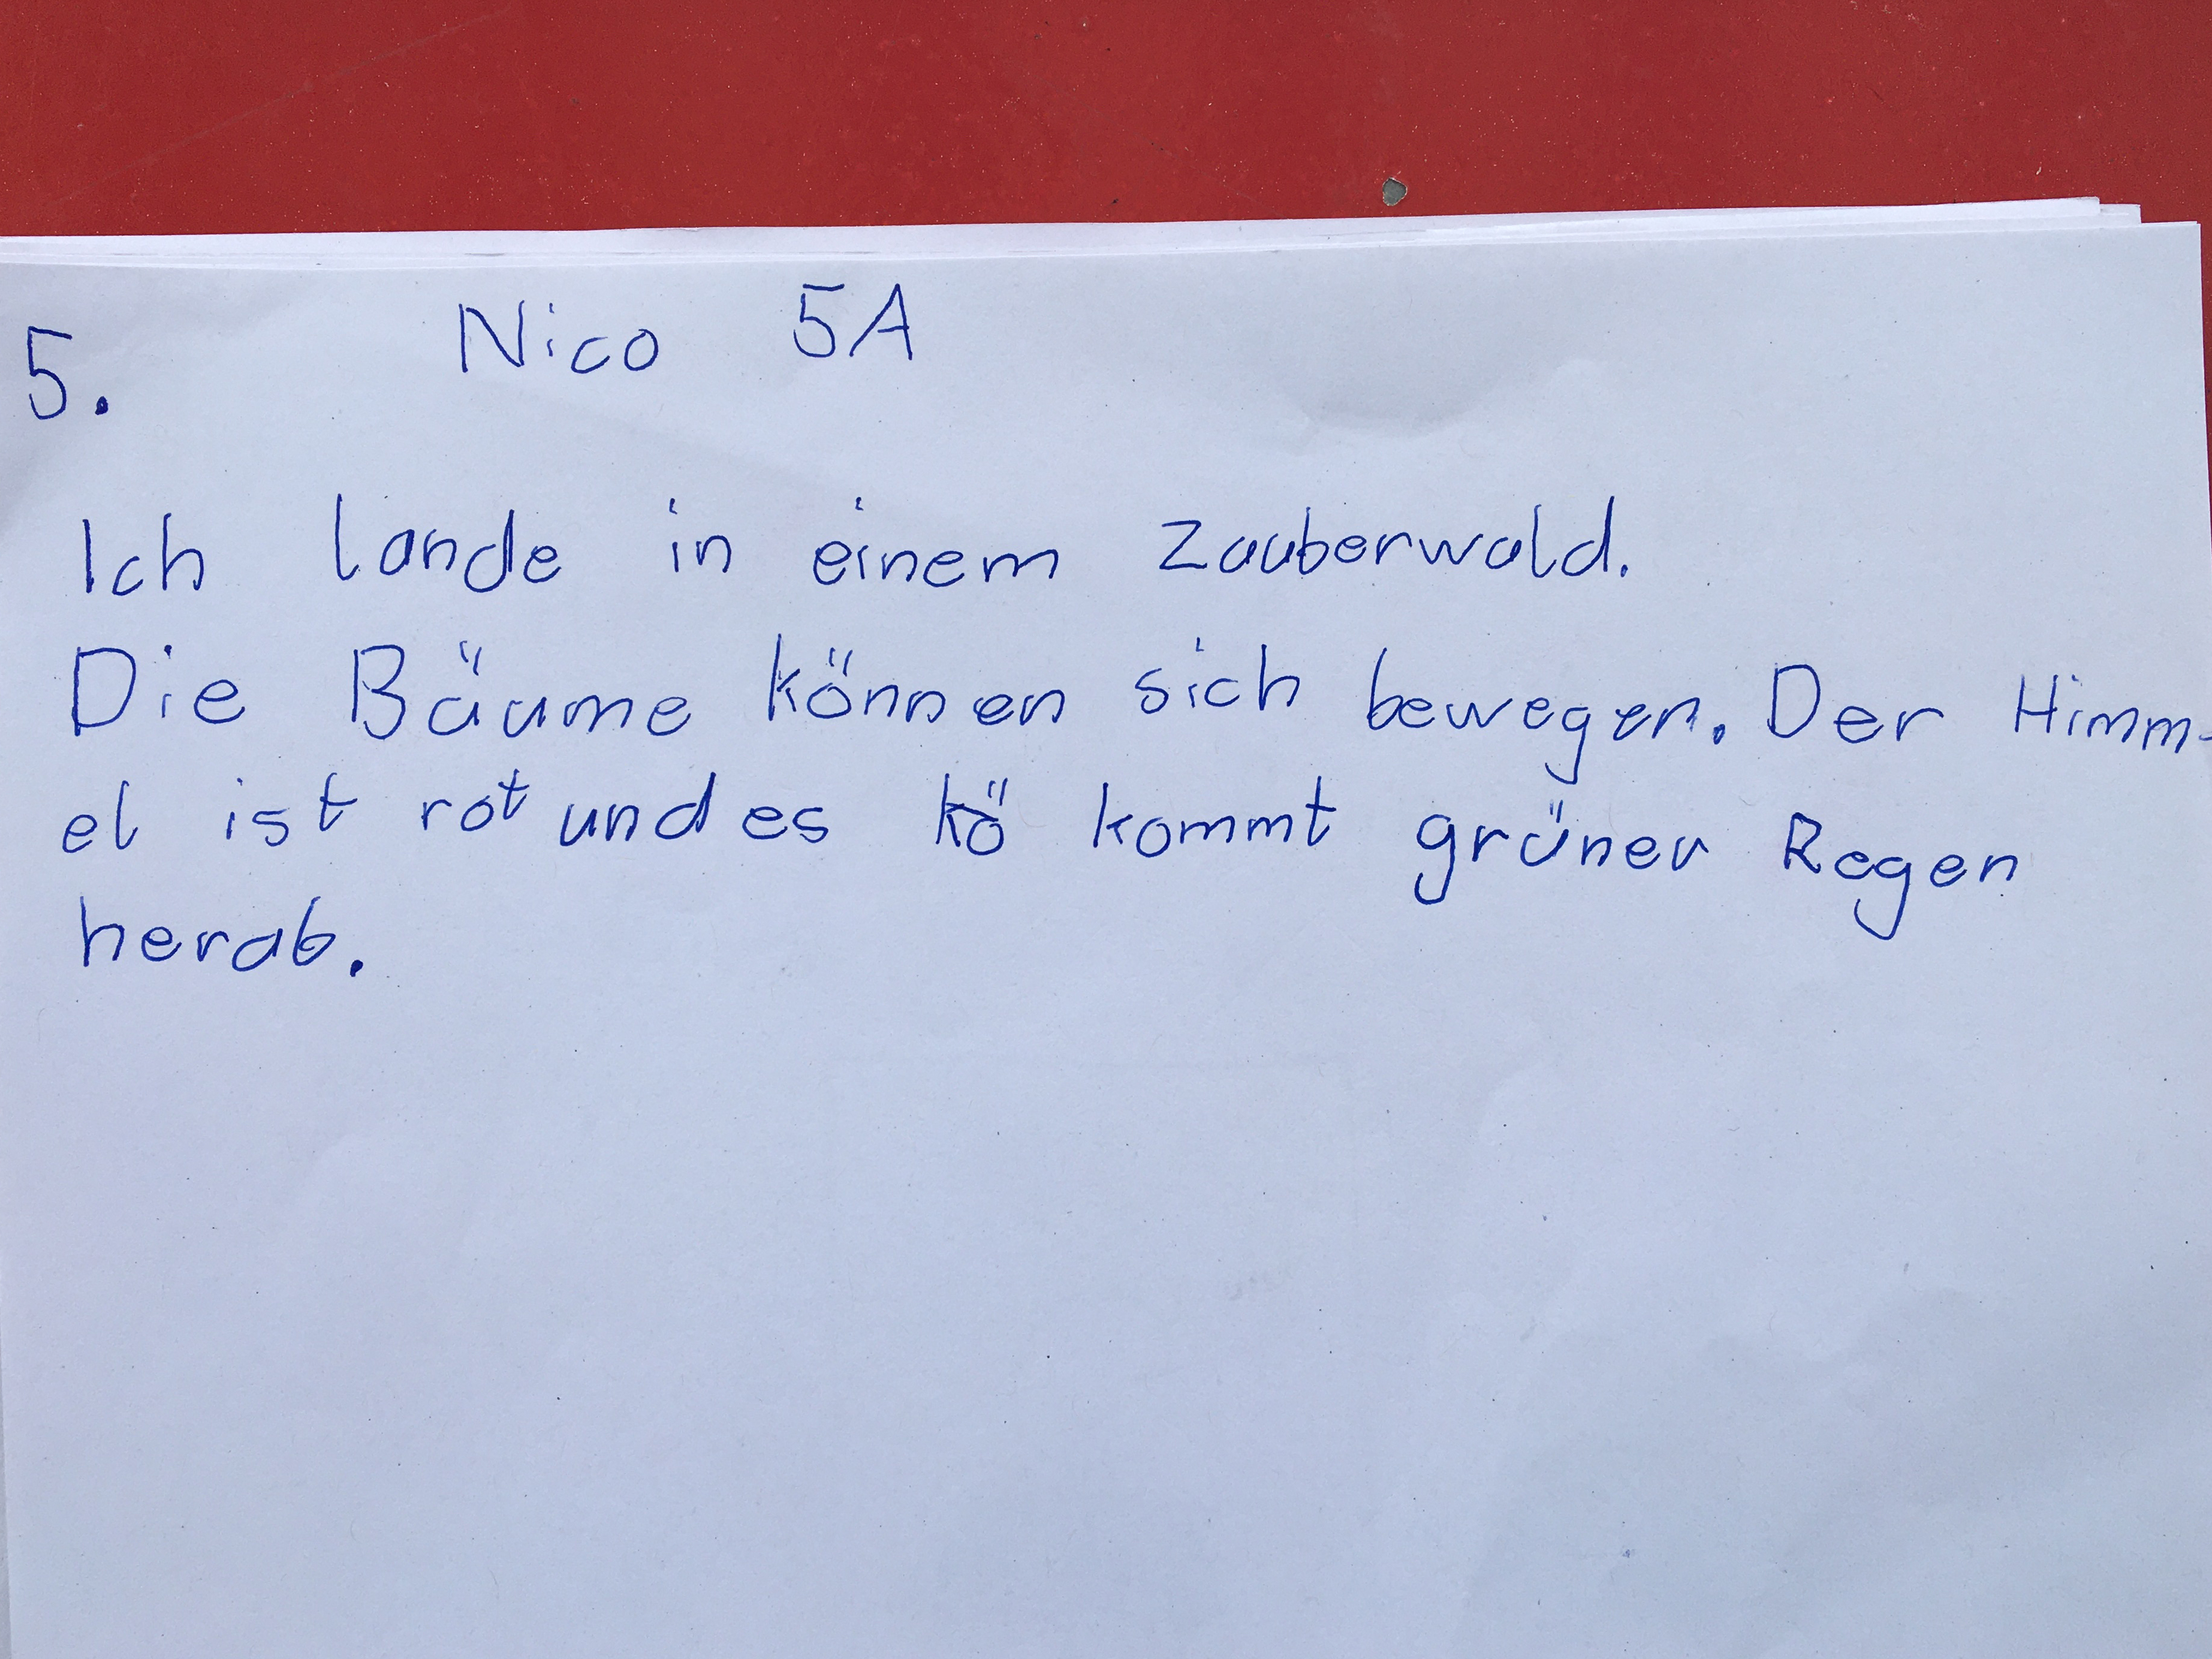 Nico 5A
5.
Ich lande in einem Zauberwald.
Die Bäume können sich bewegen. Der Himm-
el ist rot und es kö kommt grüner Regen
herab.